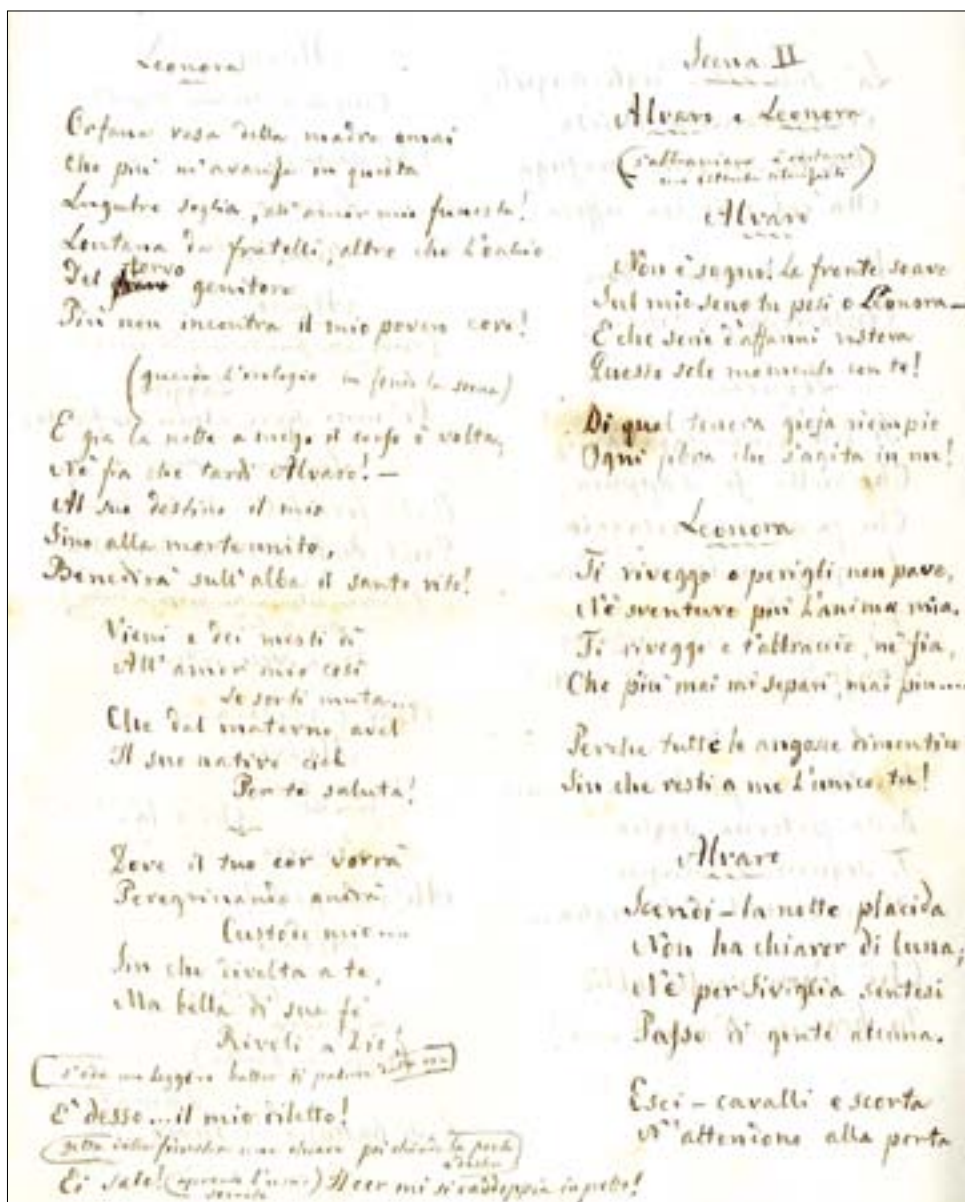 Leonora
Orfana rosa della madre omai
Che più m'avanza in questa
Lugubre soglia, all'amor mio funesta!
Lontana da fratelli, altro che l'occhio
Del torvo genitore
Più non incontra il mio povero core!
(guarda l'orologio in fondo la scena)
E già la notte a mezzo il corso è volta,
Nè fia che tardi Alvaro! —
Al suo destino il mio
Sino alla morte unito,
Benedirà sull'alba il santo rito!
Vieni e dei mesti dì
All'amor mio così
Le sorti muta...
Che dal materno avel
Il suo nativo ciel
Per te saluta!
Dove il tuo cor vorrà
Peregrinando andrà
Custode mio...
Sin che rivolta a te,
Ma bella di sua fè
Riveli a Dio!
s'ode un leggero batter di palme
E' desso... il mio diletto!
getta dalla finestra una chiave poi chiude la porta
Ei sale! (aprendo l'uscio secreto) Il cor mi si raddoppia in petto!
Scena II
Alvaro e Leonora
(s'abbracciano e restano
Alvaro
Non è sogno! La frente soave
Sul mio seno tu posi o Leonora —
E che sono d'affanni ristora
Questo solo momento con te!
Di quel tenera gioja riempie
Ogni fibra che s'agita in me!
Leonora
Ti riveggo e perigli non pave,
Nè sventure più l'anima mia.
Ti riveggo e t'abbraccio, nè fia,
Che più mai mi separi, mai più....
Perche tutte le angosce dimentico
Sin che resti a me l'unico, tu!
Alvaro
Scendi – la notte placida
Non ha chiaror di luna,
Nè per Siviglia sentesi
Passo di gente alcuna.
Esci – cavalli e scorta
N'attendono alla porta